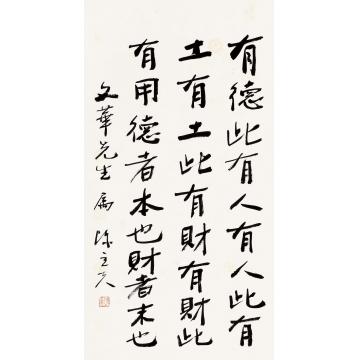 有德此有人有人此有
土有土此有財有財此
有用德者本也財者末也
文華先生屬 陳立夫